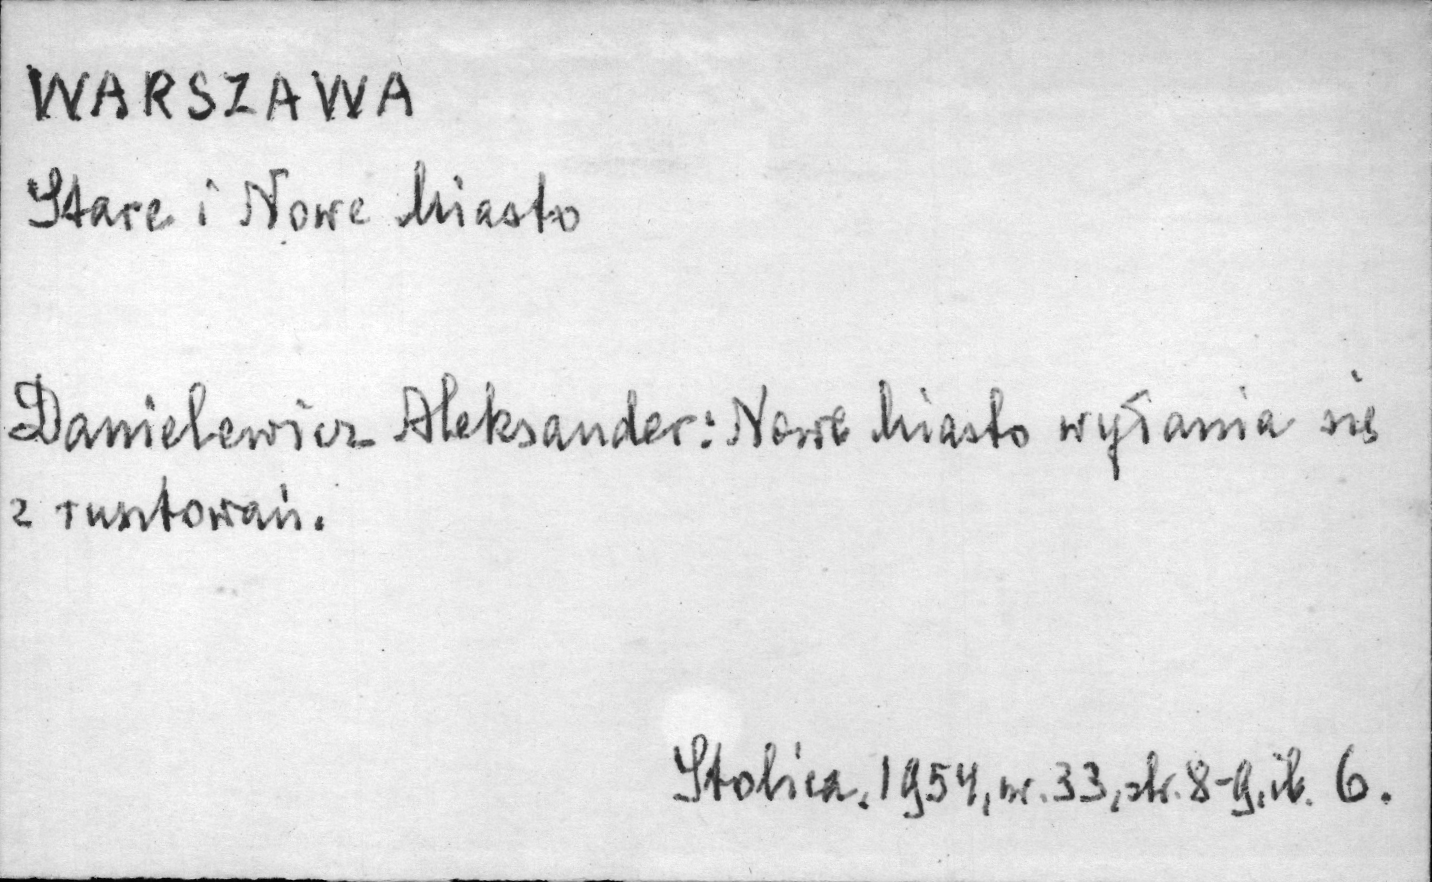 WARSZAWA
Stare i Nowe Miasto
Danielewicz Aleksander: Nowe Miasto wyłania się
z rusztowań.
Stolica, 1954, nr. 33, str. 8-9, il. 6.